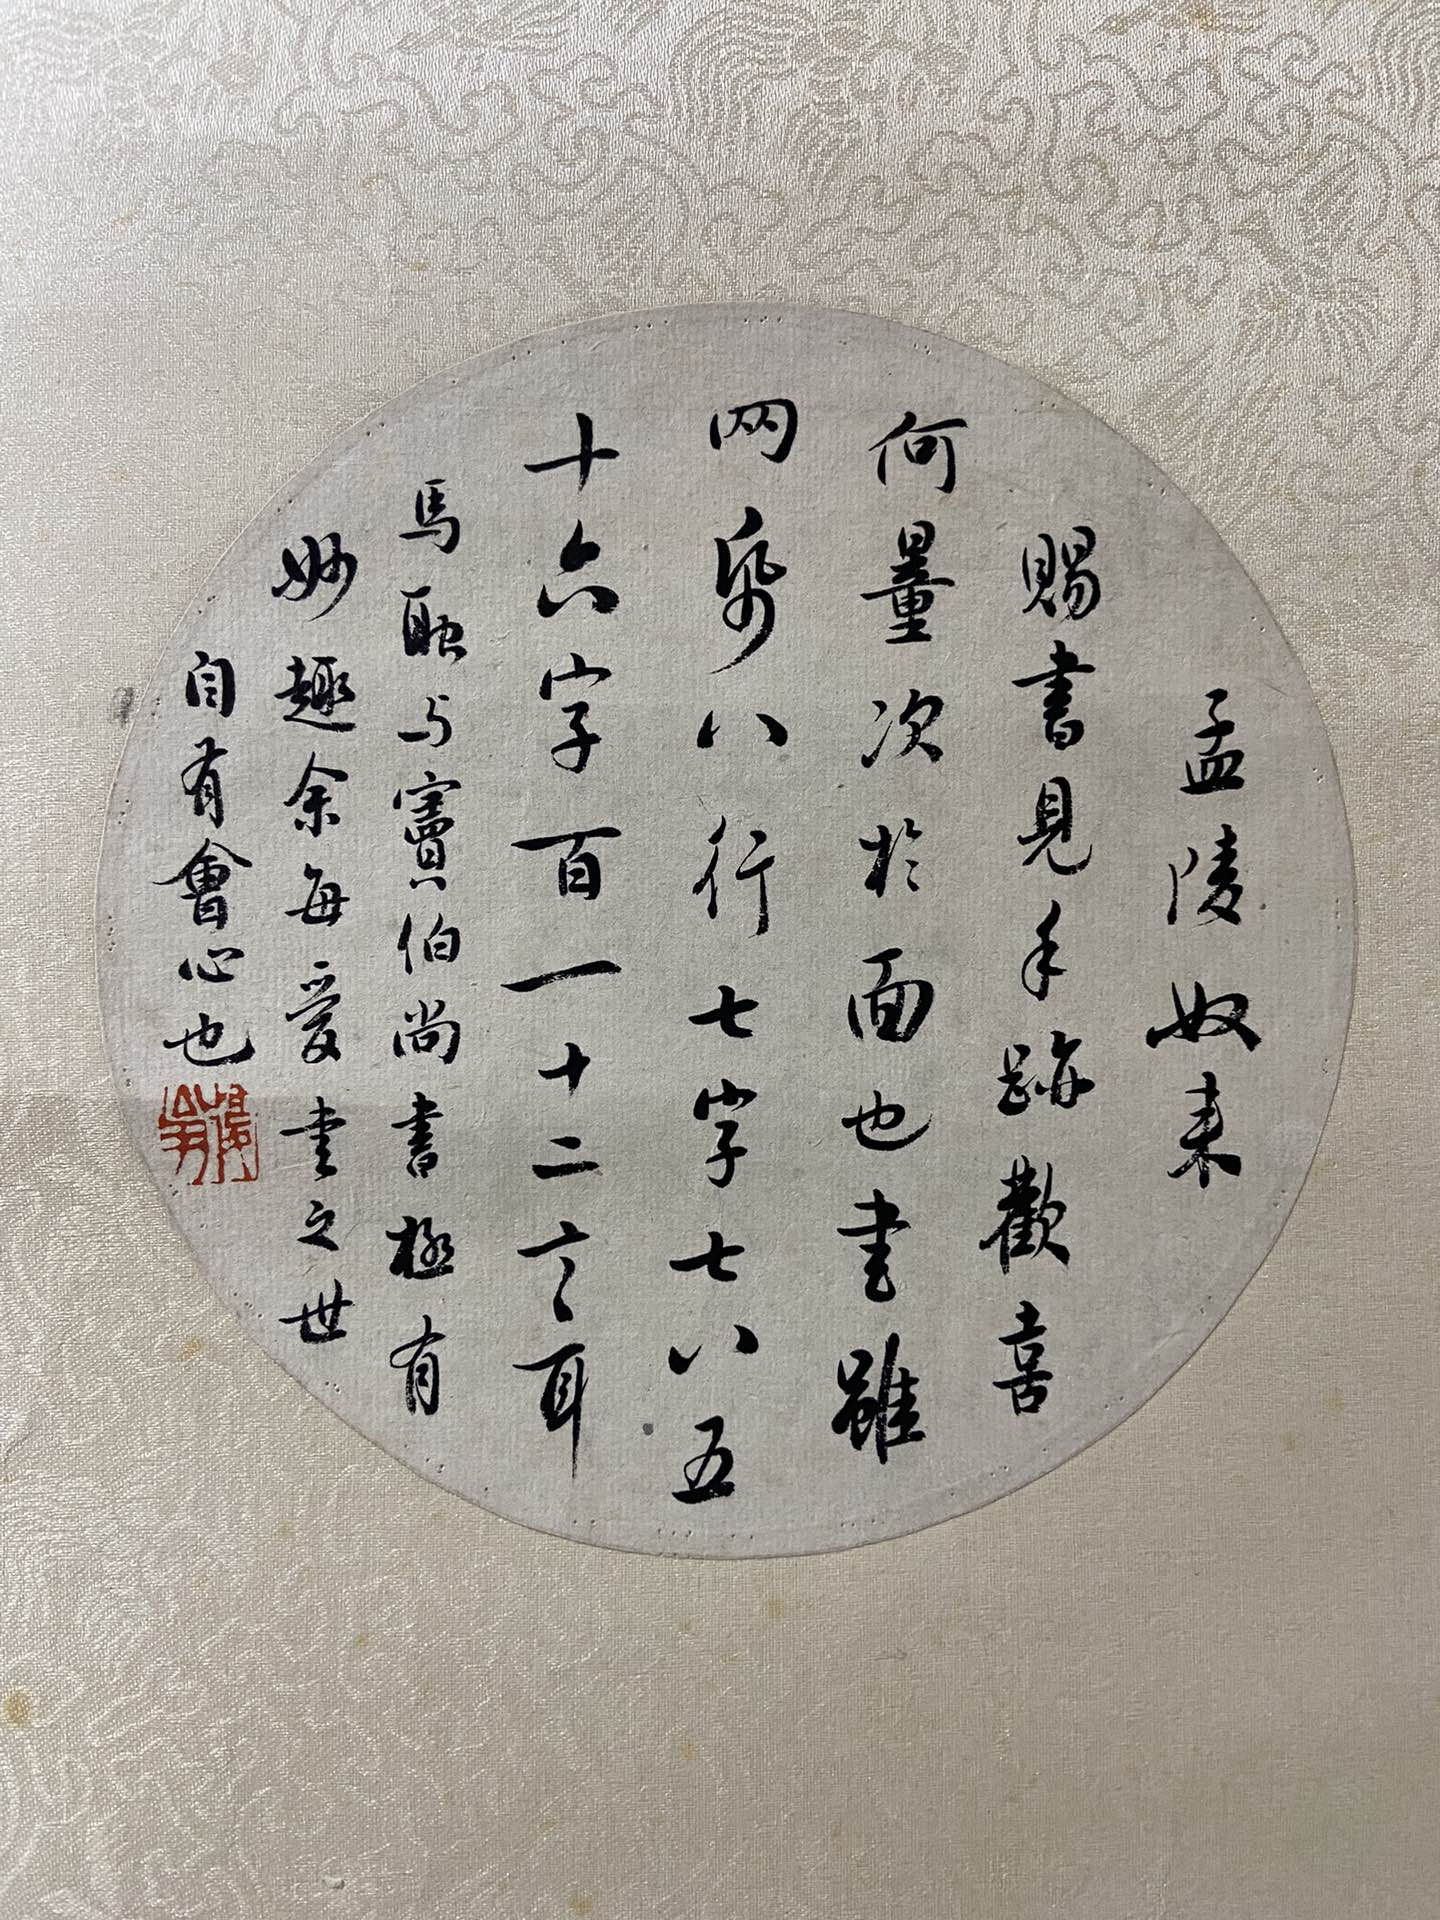 孟陵奴來
賜書見手跡歡喜
何量次於面也書雖
兩紙八行七字七八五
十六字百一十二言耳
馬融与竇伯尚書極有
妙趣余每愛書之世
自有會心也